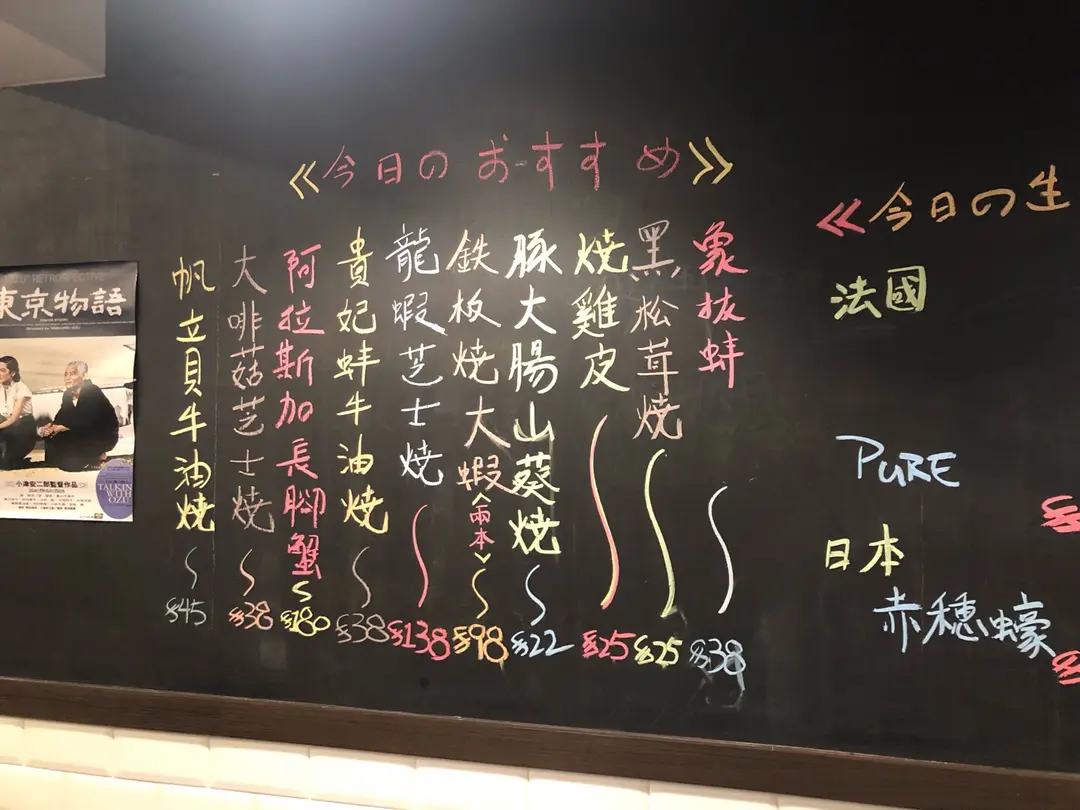 ≪今日のおすすめ≫
象拔蚌 $38
黑松茸燒 $25
燒雞皮 $25
豚大腸山葵燒 $22
鉄板燒大蝦<兩本> $98
龍蝦芝士燒 $138
貴妃蚌牛油燒 $38
阿拉斯加長腳蟹 $180
大啡菇芝士燒 $38
帆立貝牛油燒 $45
≪今日の生
法國
PURE
日本
赤穗蠔
東京物語
小津安二郎監督作品
TALKING
WITH
OZU